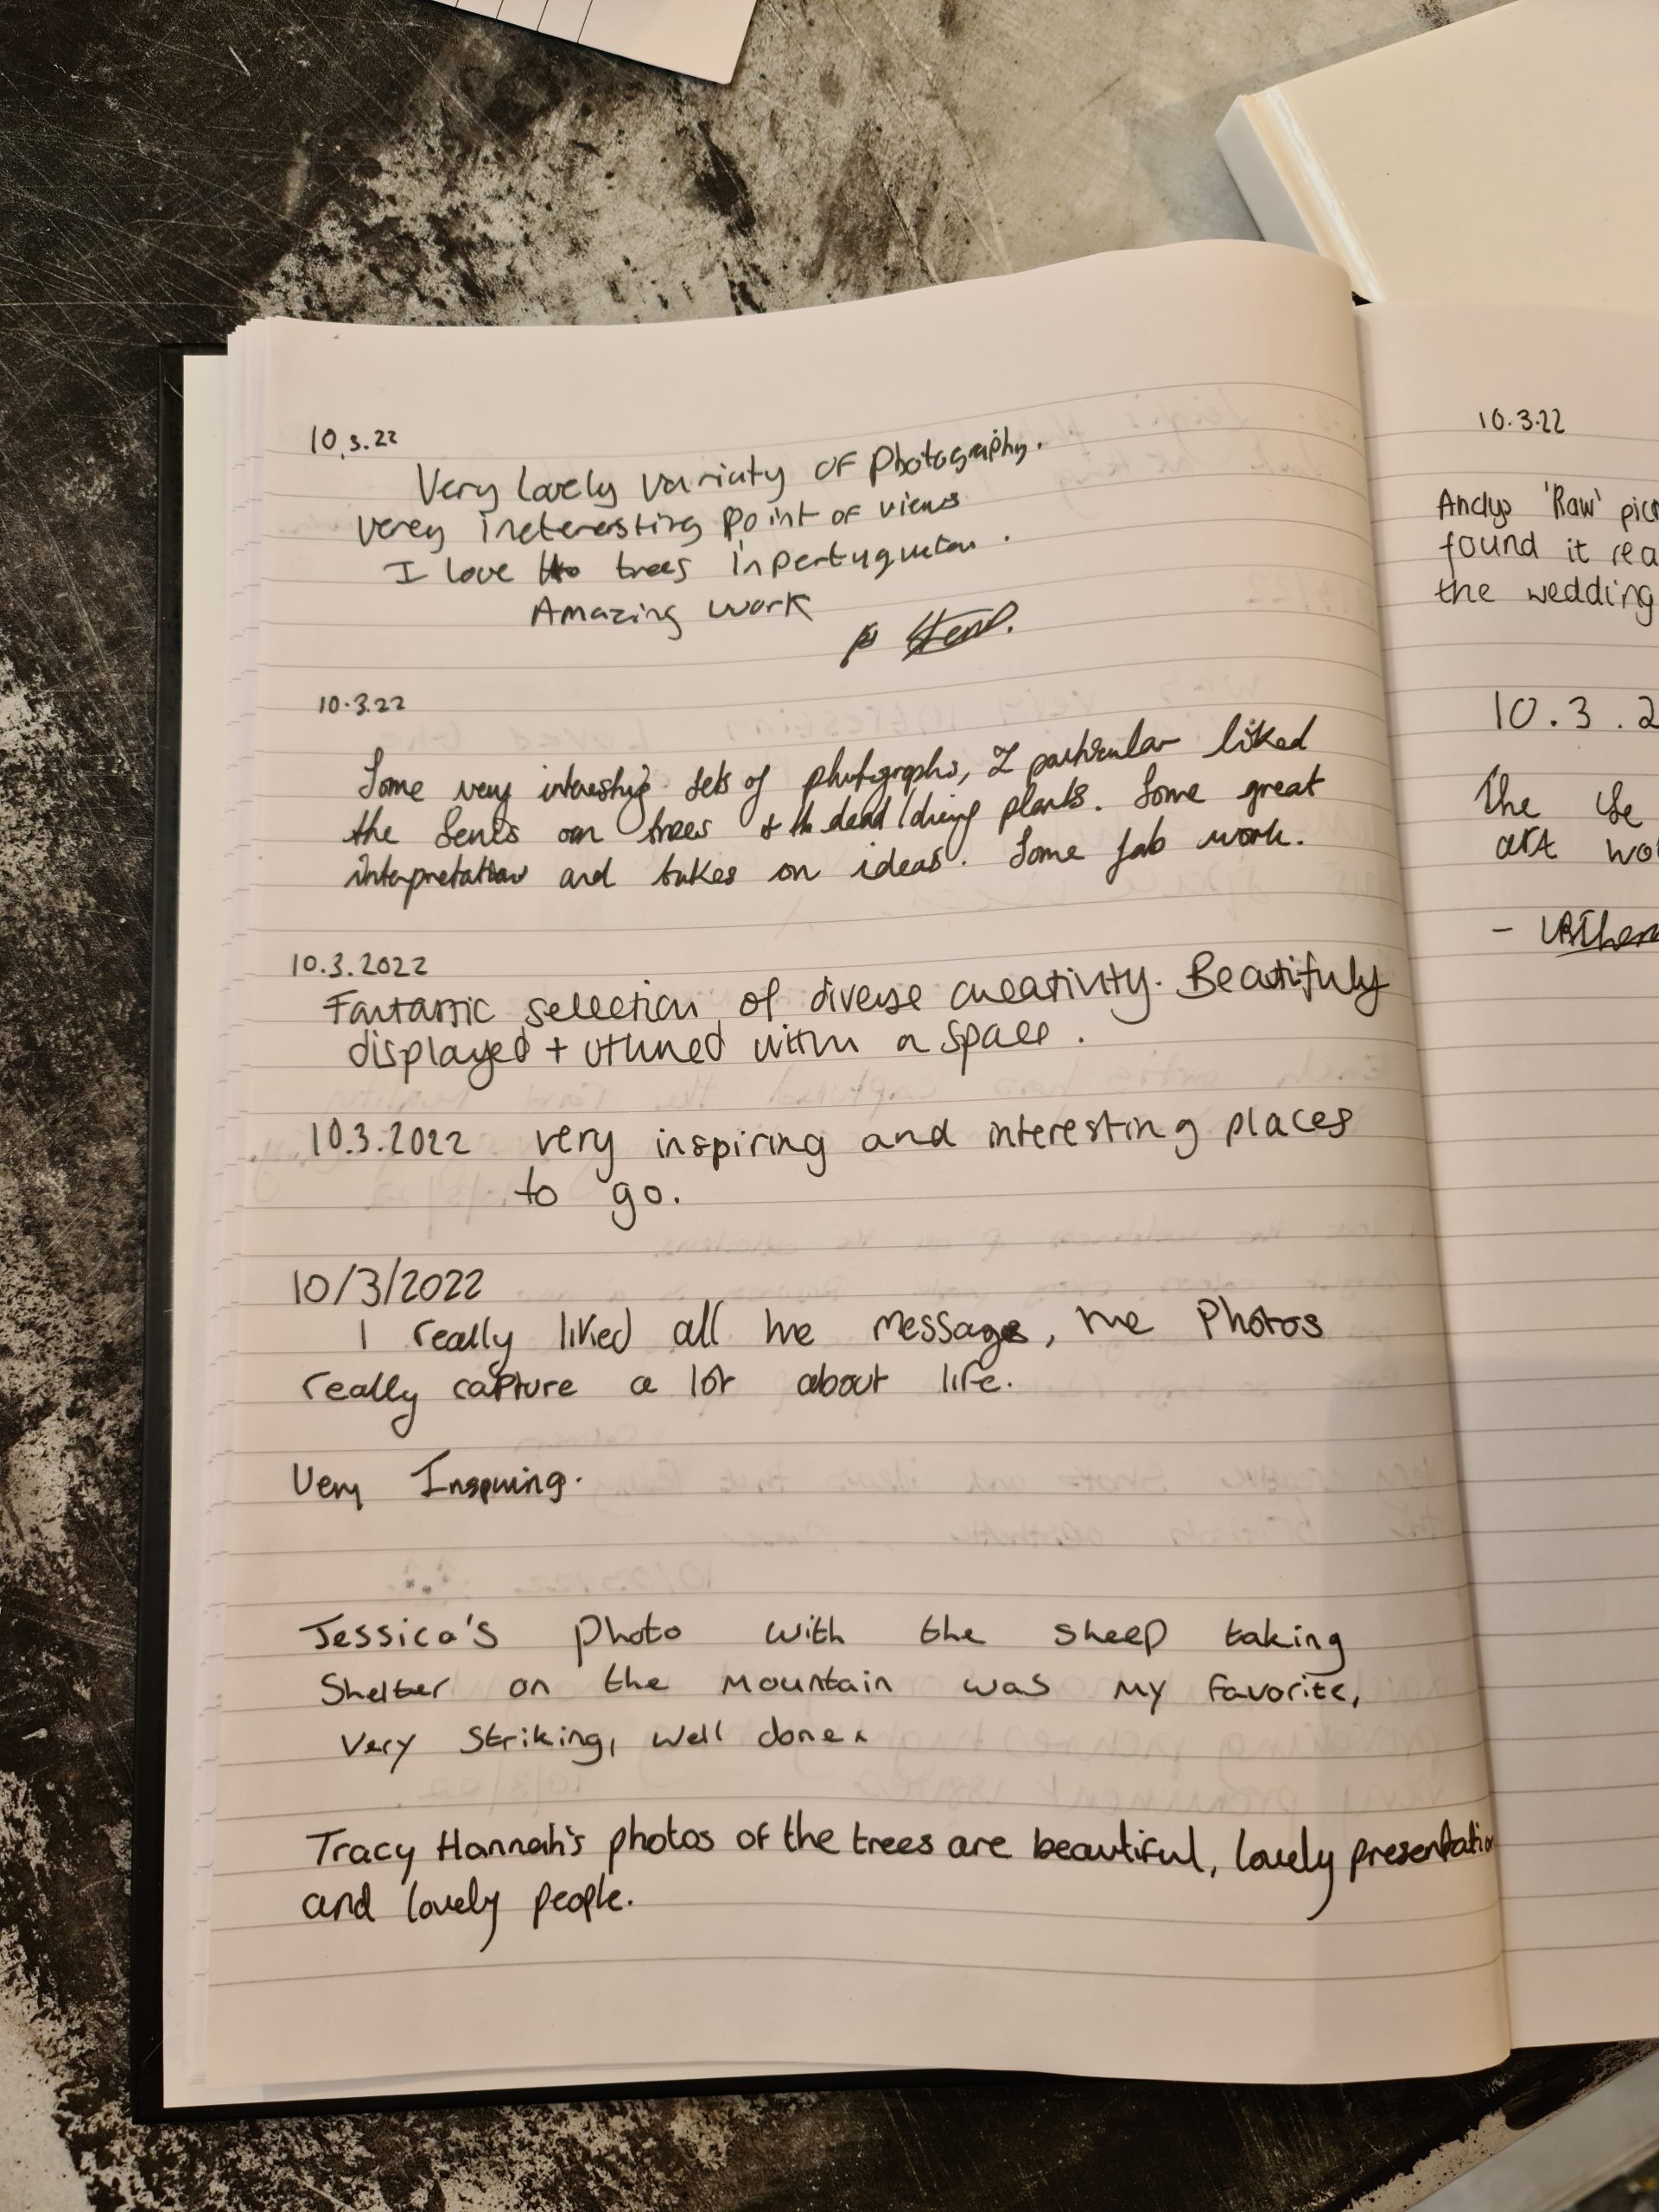 10.3.22
Very lovely variuty of photography.
verey ineteresting point of views
I love trees in pertuqueton.
Amazing work
10.3.22
Some very interesting sets of photographs, I particular liked
the series on trees + the dead/dieing plants. Some great
interpretation and takes on ideas. Some fab work.
10.3.2022
Fantastic selection of diverse creativity. Beautifuly
displayed + within a space.
10.3.2022 very inspiring and interesting places
to go.
10/3/2022
I really liked all the messages, the photos
really capture a lot about life.
Very Inspiring.
Jessica's photo with the sheep taking
shelter on the mountain was my favorite,
very striking, well done.
Tracy Hannah's photos of the trees are beautiful, lovely presentation
and lovely people.
10.3.22
Andys 'Raw'
found it
the wedding
10.3.2
The
art